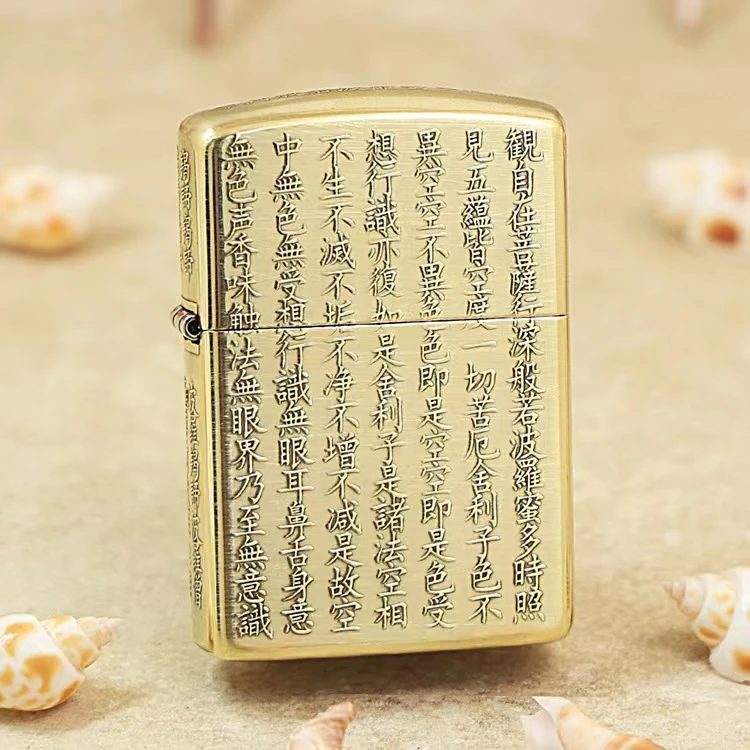 観自在菩薩行深般若波羅蜜多時照
見五蘊皆空度一切苦厄舎利子色不
異空空不異色色即是空空即是色受
想行識亦復如是舎利子是諸法空相
不生不滅不垢不浄不増不減是故空
中無色無受想行識無眼耳鼻舌身意
無色声香味触法無眼界乃至無意識